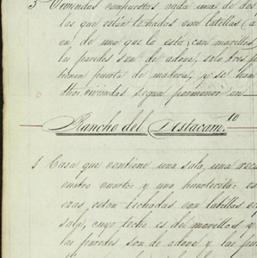 3 Viviendas compuestas cada una de dos
las que están techadas con latillas
en de uno que lo está con morillos
las paredes son de adove, solo tres
tienen puerta de madera, y se han
otras viviendas segun permanen en
Rancho del Destacam.to
1 Casa que contiene una sala, una
cuatro cuartos y una huertecita
enas estan techadas con latillas
sala, cuyo techo es de morillos, y
las paredes son de adove y las